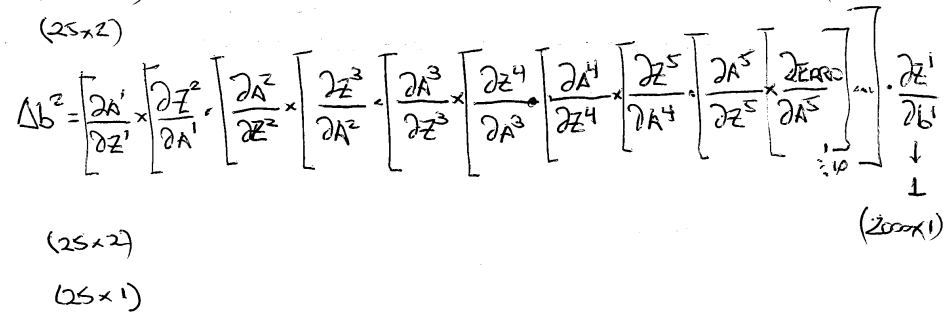 (25x2)
Δb² = [∂A¹/∂Z¹ × [∂Z²/∂A¹ · [∂A²/∂Z² × [∂Z³/∂A² · [∂A³/∂Z³ × [∂Z⁴/∂A³ · [∂A⁴/∂Z⁴ × [∂Z⁵/∂A⁴ · [∂A⁵/∂Z⁵ × [∂ERRO/∂A⁵] ... ] · ∂Z¹/∂b¹
↓
1
(2000x1)
(25x2)
(25x1)